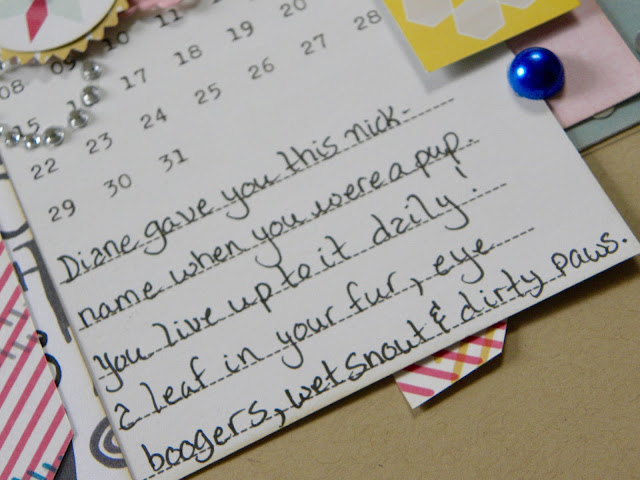 08 09 10 11
15 17 18 19 20
22 23 24 25 26 27 28
29 30 31
Diane gave you this nick-
name when you were a pup.
you live up to it daily!
a leaf in your fur, eye
boogers, wet snout & dirty paws.